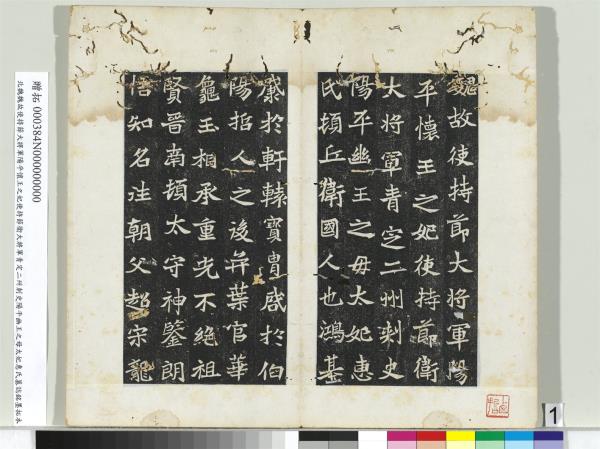 魏故使持節大將軍陽
平懷王之妃使持節衛
大將軍青定二州刺史
陽平幽王之母太妃惠
氏頓丘衛國人也鴻基
於軒轅寶胄啟於伯
陽招人之後弈葉官華
龜玉相承重光不絕祖
賢晉南頓太守神鑒朗
悟知名往朝父超宋龍
1
贈拓 000384N000000000
北魏魏故使持節大將軍陽平懷王之妃使持節衛大將軍青定二州刺史陽平幽王之母太妃惠氏墓誌銘墨拓本